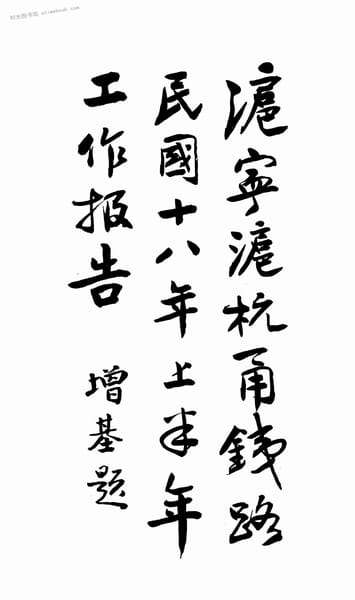 滬寧滬杭甬鐵路
民國十八年上半年
工作报告
增基題
时光图书馆 etimebook.com